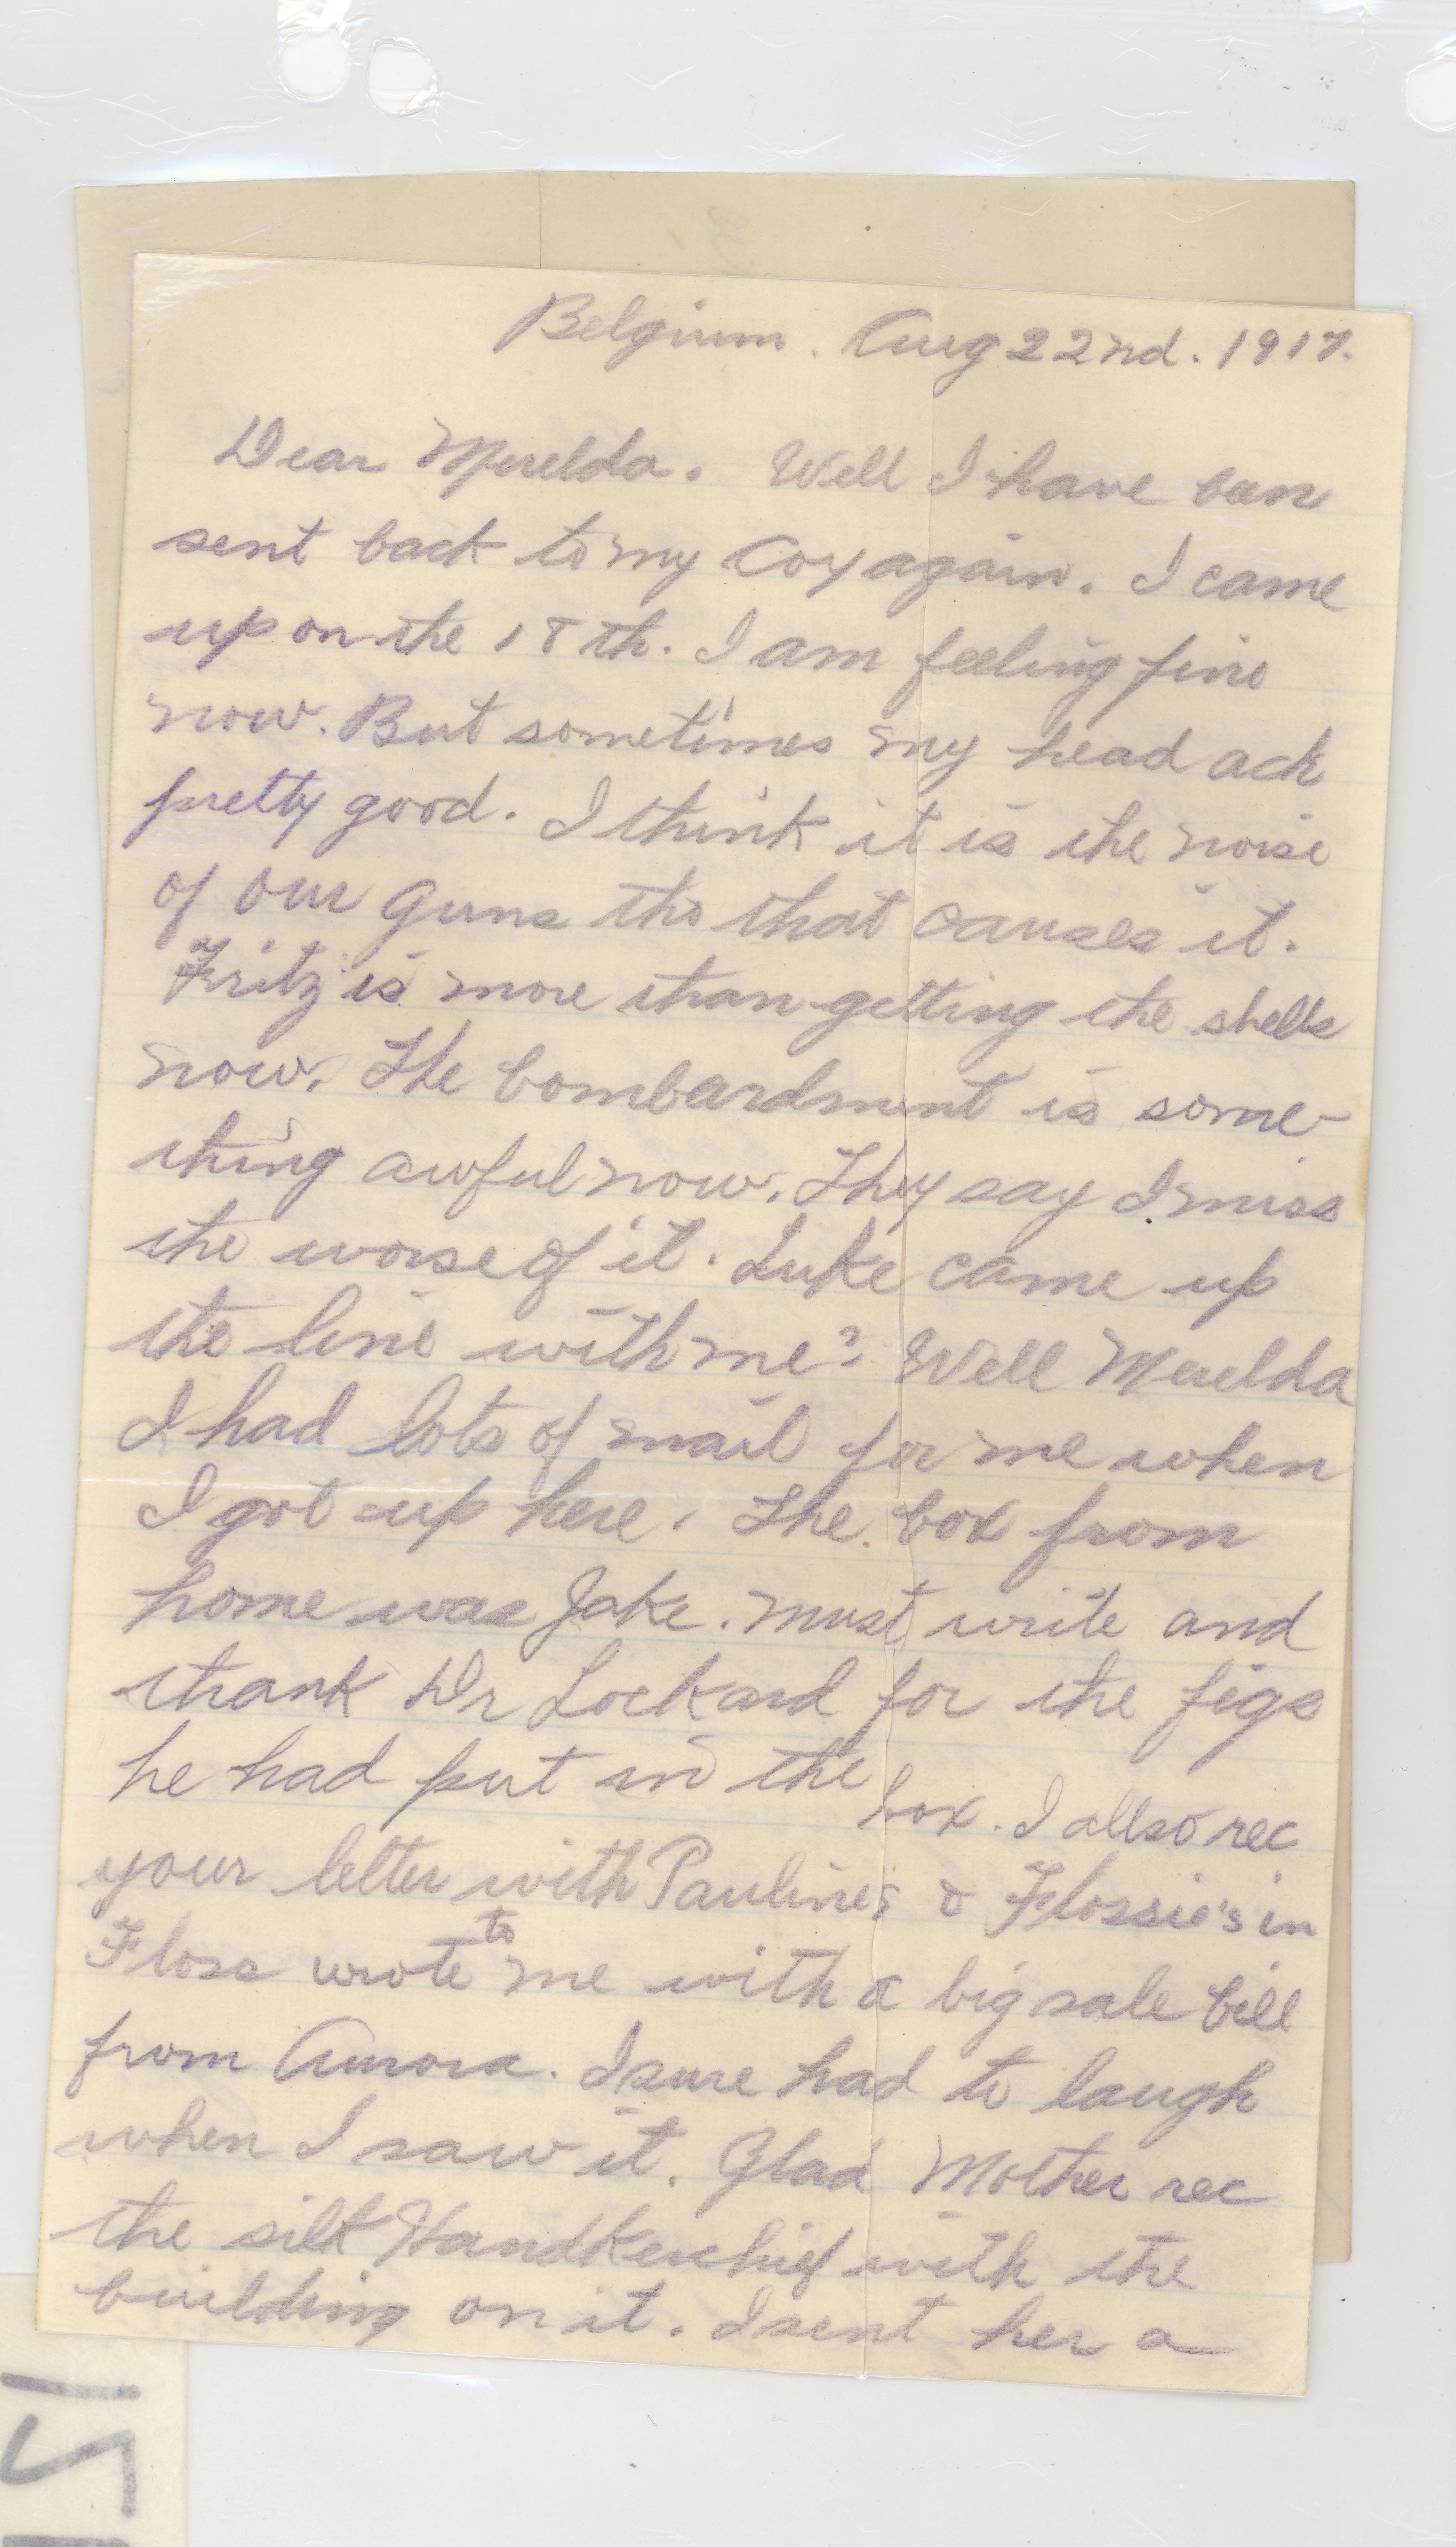 Belgium. Aug 22nd. 1917.
Dear Merelda. Well I have ben
sent back to my Coy again. I came
up on the 18th. I am feeling fine
now. But sometimes my head ack
pretty good. I think it is the noise
of our guns tho that causes it.
Fritz is more than getting the shells
now. The bombardment is some-
thing awful now. They say I miss
the worse of it. Luke came up
the line with me? Well Merelda
I had lots of mail for me when
I got up here. The box from
home was Jake. must write and
thank Dr Lockard for the figs
he had put in the box. I allso rec
your letter with Pauline's & Flossie's in
Floss wrote to me with a big sale bill
from Aurora. I sure had to laugh
when I saw it. Glad Mother rec
the silk Handkerchief with the
building on it. I sent her a